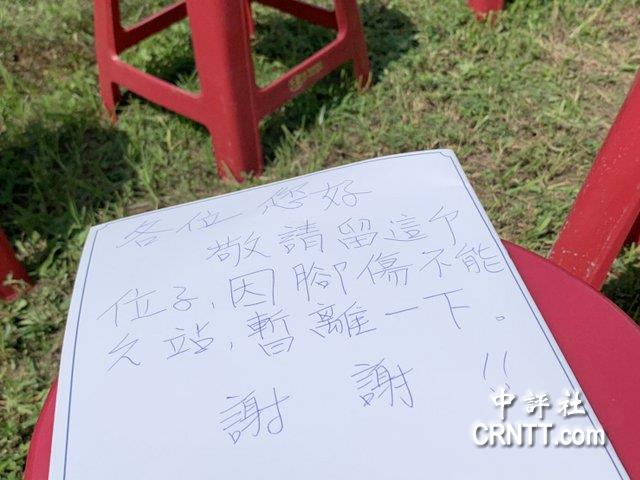 各位 您好
敬請留這个
位子,因腳傷不能
久站,暫離一下。
謝 謝 !!
中評社
CRNTT.com